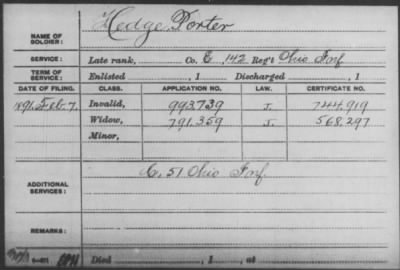 Hedge Porter
NAME OF SOLDIER:
SERVICE: Late rank, Co. E, 142 Reg't Ohio Inf.
TERM OF SERVICE: Enlisted , 1 Discharged , 1
DATE OF FILING. CLASS. APPLICATION NO. LAW. CERTIFICATE NO.
1891, Feb. 7. Invalid, 993.739 J. 744.919
Widow, 791.359 J. 568,297
Minor,
C, 51 Ohio Inf.
ADDITIONAL SERVICES:
REMARKS:
Died , 1 , at